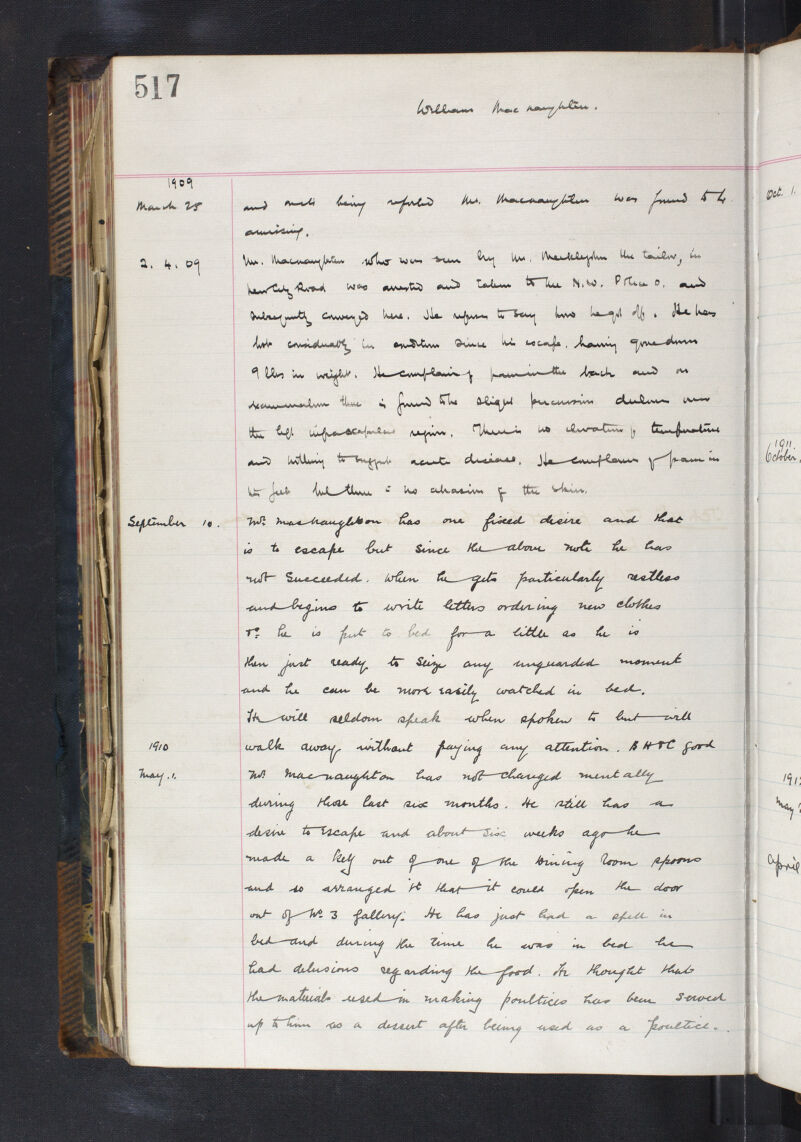 517
William Macnaughton.
1909
March 25 and on its being reported Mr. Macnaughton was found to be
amissing.
2. 4. 09 Mr. Macnaughton who was seen by Mr. the tailor, in
New City Road was arrested and taken to the N.W. Police O. and
subsequently conveyed here. He refuses to say how he got off. He has
lost considerably in condition since his escape, having gone down
9 lbs in weight. He complains of pain in the back and on
examination there is found to be slight percussion dulness over
the left infrascapular region. There is no elevation of temperature
and nothing to suggest acute disease. He complains of pain in
his feet but there is no abrasion of the skin.
September 10. Mr. Macnaughton has one fixed desire and that
is to escape but since the above note he has
not succeeded. When he gets particularly restless
and begins to write letters ordering new clothes
&c he is put to bed for a little as he is
then just ready to seize any unguarded moment
and he can be more easily watched in bed.
He will seldom speak when spoken to but will
1910 walk away without paying any attention. B H & C good
May. 1. Mr Macnaughton has not changed mentally
during those last six months. He still has a
desire to escape and about six weeks ago he
made a key out of one of the Dining Room spoons
and so arranged it that it could open the door
out of No. 3 gallery. He has just had a spell in
bed and during the time he was in bed he
had delusions regarding the food. He thought that
the materials used in making poultices has been served
up to him as a dessert after being used as a poultice.
Oct. 1.
1911
October.
May
April